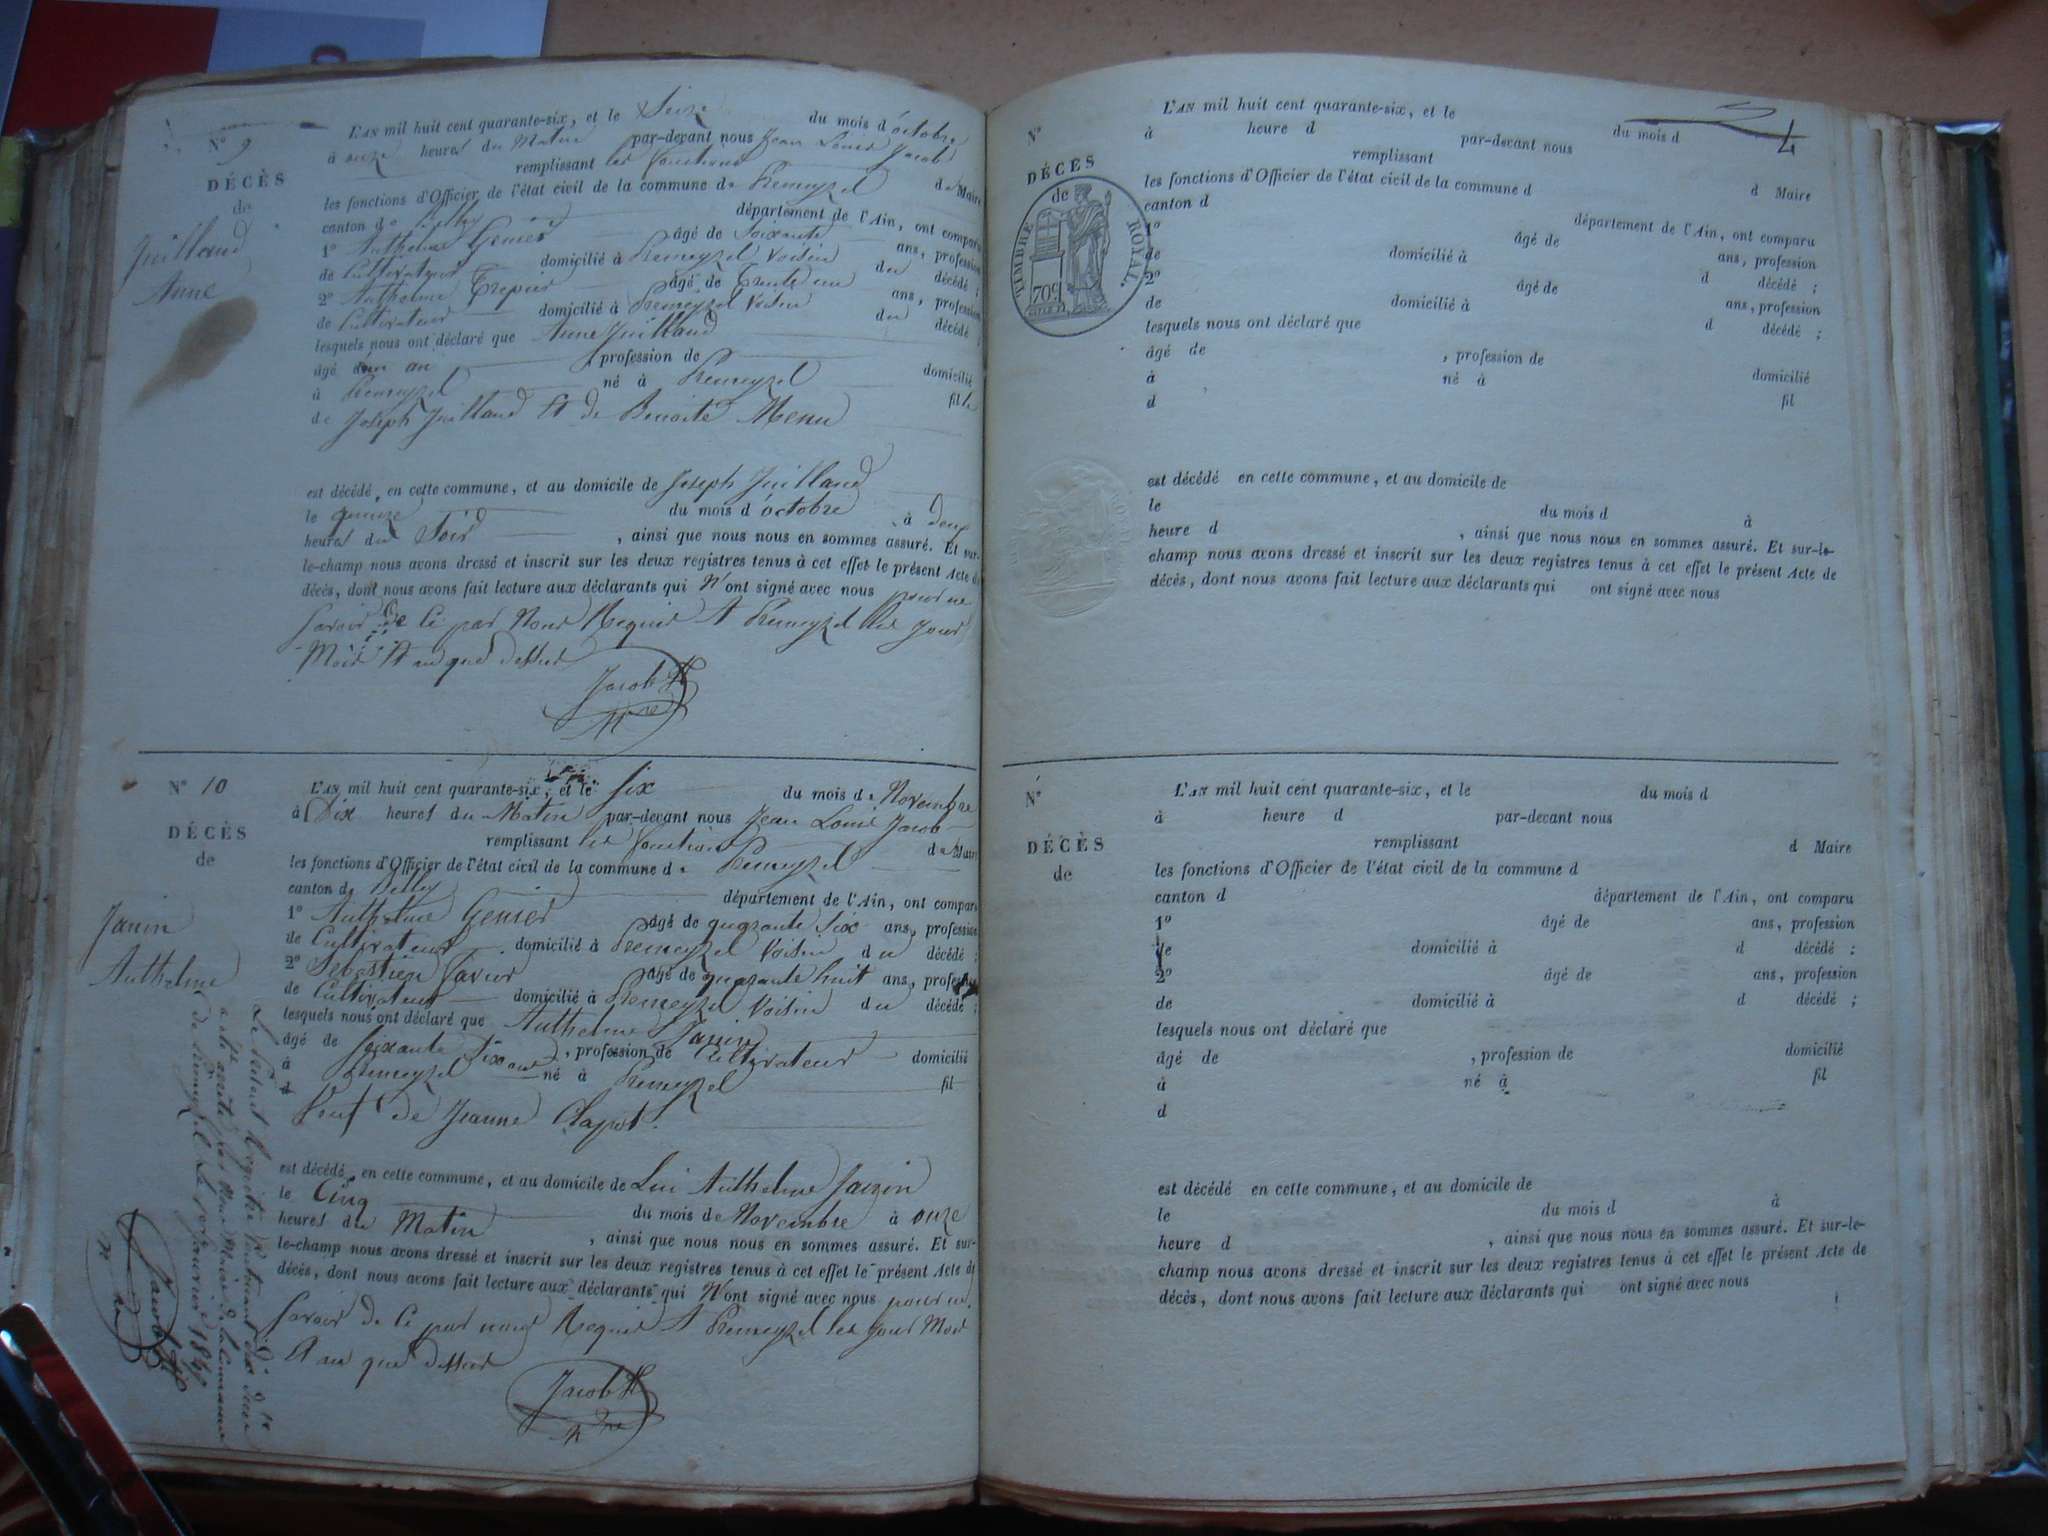 N° 9
DÉCÈS
de
Juilland
Anne
L'AN mil huit cent quarante-six, et le Seize du mois d'octobre
à onze heures du Matin par-devant nous Jean Louis Jacob
remplissant les fonctions de Maire
les fonctions d'Officier de l'état civil de la commune de Premeyzel
canton de Belley département de l'Ain, ont comparu
1° Anthelme Genier âgé de Soixante ans, profession
de Cultivateur domicilié à Premeyzel Voisin du décédé ;
2° Anthelme Trepier âgé de Trente un ans, profession
de Cultivateur domicilié à Premeyzel Voisin du décédé ;
lesquels nous ont déclaré que Anne Juilland
âgé d'un an , profession de domicilié
à Premeyzel né à Premeyzel fille
de Joseph Juilland Et de Benoite Menu
est décédé, en cette commune, et au domicile de Joseph Juilland
le quinze du mois d'octobre à deux
heures du Soir , ainsi que nous nous en sommes assuré. Et sur-
le-champ nous avons dressé et inscrit sur les deux registres tenus à cet effet le présent Acte de
décès, dont nous avons fait lecture aux déclarants qui N'ont signé avec nous pour ne
Savoir de Ce par Nous Requis A Premeyzel les Jour
Mois Et an que dessus
Jacob
Mre
N° 10
DÉCÈS
de
Janin
Anthelme
L'AN mil huit cent quarante-six, et le Six du mois de Novembre
à Dix heures du Matin par-devant nous Jean Louis Jacob
remplissant les fonctions de Maire
les fonctions d'Officier de l'état civil de la commune de Premeyzel
canton de Belley département de l'Ain, ont comparu
1° Anthelme Genier âgé de quarante Six ans, profession
de Cultivateur domicilié à Premeyzel Voisin du décédé ;
2° Sebastien Savier âgé de quarante huit ans, profession
de Cultivateur domicilié à Premeyzel Voisin du décédé ;
lesquels nous ont déclaré que Anthelme Janin
âgé de Soixante Six ans , profession de Cultivateur domicilié
à Premeyzel né à Premeyzel fil
Veuf de Jeanne Clapot
est décédé, en cette commune, et au domicile de Lui Anthelme Janin
le Cinq du mois de Novembre à onze
heures du Matin , ainsi que nous nous en sommes assuré. Et sur-
le-champ nous avons dressé et inscrit sur les deux registres tenus à cet effet le présent Acte de
décès, dont nous avons fait lecture aux déclarants qui N'ont signé avec nous pour ne
Savoir de Ce par nous Requis A Premeyzel les Jour Mois
Et an que dessus
Jacob
Mre
Le Présent Registre Contenant dix
a été arrêté par Nous Maire de la Commune
de Premeyzel Le Janvier 1847
Jacob
N°
DÉCÈS
de
TIMBRE ROYAL.
70c
L'AN mil huit cent quarante-six, et le du mois d
à heure d par-devant nous
remplissant d Maire
les fonctions d'Officier de l'état civil de la commune d
canton d département de l'Ain, ont comparu
1° âgé de ans, profession
de domicilié à d décédé ;
2° âgé de ans, profession
de domicilié à d décédé ;
lesquels nous ont déclaré que
âgé de , profession de domicilié
à né à fil
d
est décédé en cette commune, et au domicile de
le du mois d à
heure d , ainsi que nous nous en sommes assuré. Et sur-le-
champ nous avons dressé et inscrit sur les deux registres tenus à cet effet le présent Acte de
décès, dont nous avons fait lecture aux déclarants qui ont signé avec nous
N°
DÉCÈS
de
L'AN mil huit cent quarante-six, et le du mois d
à heure d par-devant nous
remplissant d Maire
les fonctions d'Officier de l'état civil de la commune d
canton d département de l'Ain, ont comparu
1° âgé de ans, profession
de domicilié à d décédé ;
2° âgé de ans, profession
de domicilié à d décédé ;
lesquels nous ont déclaré que
âgé de , profession de domicilié
à né à fil
d
est décédé en cette commune, et au domicile de
le du mois d à
heure d , ainsi que nous nous en sommes assuré. Et sur-le-
champ nous avons dressé et inscrit sur les deux registres tenus à cet effet le présent Acte de
décès, dont nous avons fait lecture aux déclarants qui ont signé avec nous